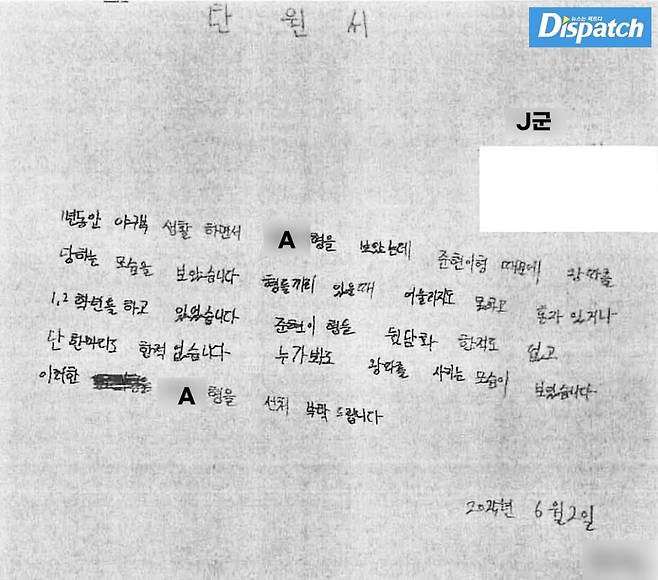 탄 원 서
뉴스는 팩트다
Dispatch
J군
1년동안 야구부 생활 하면서 A 형을 보았는데 준현이형 때문에 왕따를
당하는 모습을 보았습니다 형들끼리 있을때 어울리지도 못하고 혼자 있거나
1,2 학년들 하고 있었습니다 준현이 형을 뒷담화 한적도 없고
단 한마디도 한적 없습니다 누가봐도 왕따를 시키는 모습이 보였습니다
이러한 A 형을 선처 부탁 드립니다
2025년 6월 2일